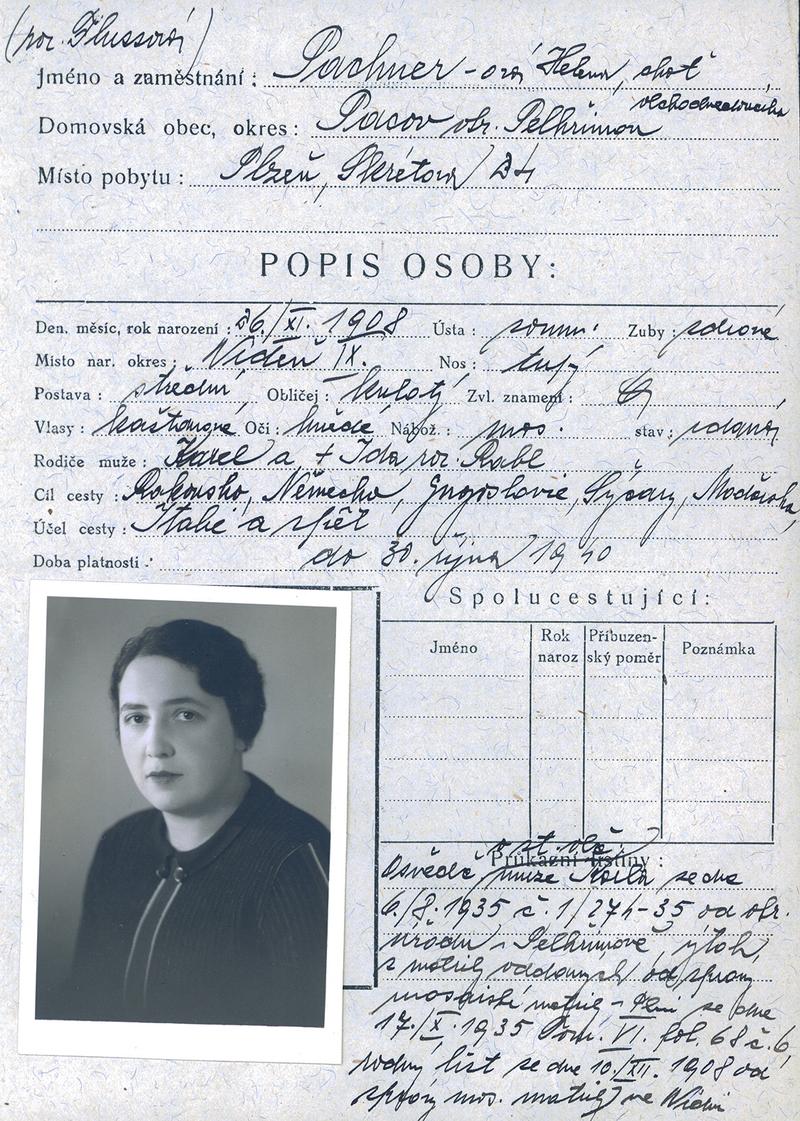 (roz. Flussová)
Jméno a zaměstnání : Pachner-ová Helena, choť
obchodvedoucího
Domovská obec, okres : Pacov okr. Pelhřimov
Místo pobytu : Plzeň, Škrétova 24
POPIS OSOBY:
Den. měsíc, rok narození : 26./XI. 1908 Ústa : souměr. Zuby : zdravé
Místo nar. okres : Vídeň IX. Nos : tupý
Postava : střední Obličej : kulatý Zvl. znamení :
Vlasy : kaštanové Oči : hnědé Nábož. : mos. stav : vdaná
Rodiče muže : Karel a + Ida roz. Rabl
Cíl cesty : Rakousko, Německo, Jugoslavie, Švýcary, Maďarsko,
Účel cesty : Italie a zpět
Doba platnosti : do 30. října 1940
Spolucestující:
Jméno Rok naroz Příbuzenský poměr Poznámka
o st. obč.
Průkazní listiny :
Osvědč. muže Karla ze dne
6./8. 1935 č. 1/274-35 od okr.
úřadu v Pelhřimově, výtah
z matriky oddaných od správy
mosaiské matriky v Plzni ze dne
17./X. 1935 Tom. VI. fol. 68 č. 6,
rodný list ze dne 10./XII. 1908 od
správy mos. matriky ve Vídni